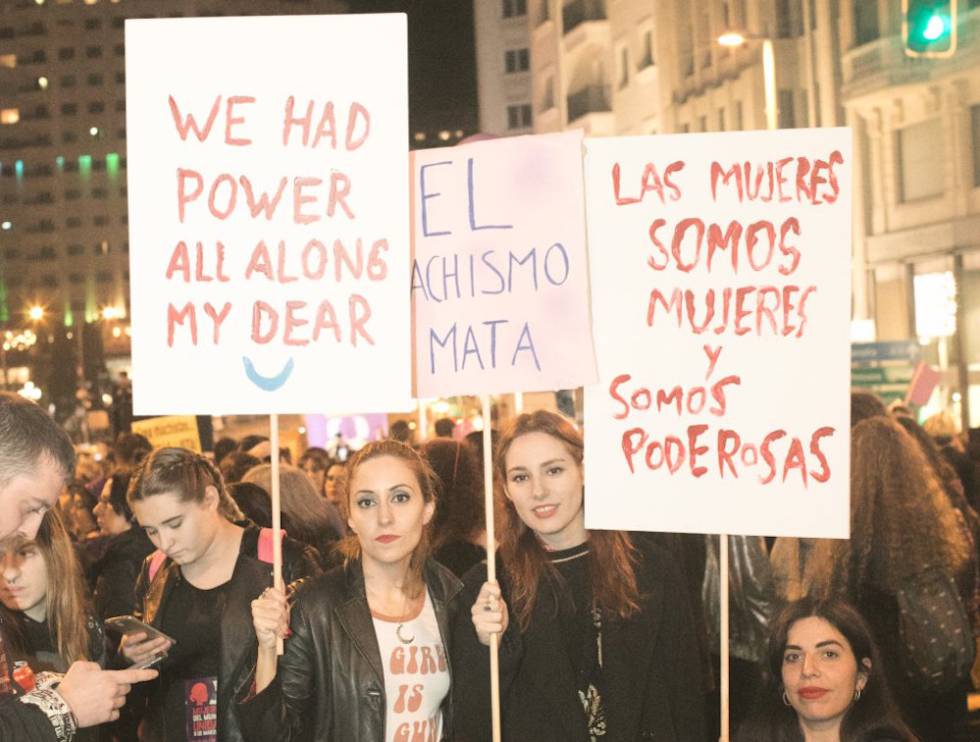 WE HAD
POWER
ALL ALONG
MY DEAR
EL
ACHISMO
MATA
LAS MUJERES
SOMOS
MUJERES
Y
SOMOS
PODEROSAS
GIRL
IS